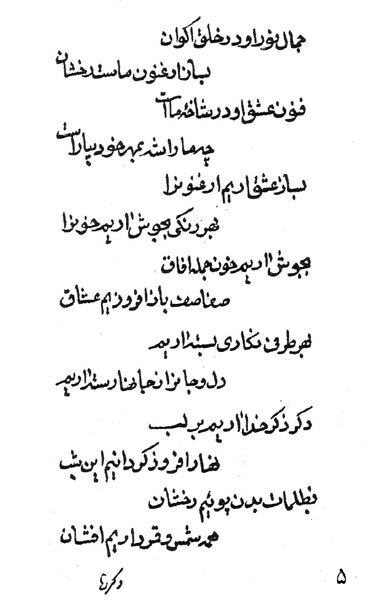 جمال نور او در خلق اکوان
بساز ارغنون ماست رخشان
فنون عشق او در شاخهٔ ماست
چه ما را شه بمهر خود بیاراست
بساز عشق اریم ارغنونرا
بهر رنگی بجوش اریم خونرا
بجوش اریم خون جمله افاق
صفاصف باز افروزیم عشاق
بهر طرفی نگاری بسته داریم
دل و جانرا ز جانها رسته داریم
دگر ذکر خدا داریم بر لب
نهار افروز گردانیم این شب
بظلمات بدن پوئیم رخشان
همه شمس و قمر داریم افشان
۵